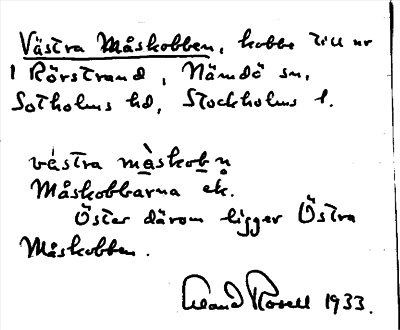 Västra Måskobben, kobbe till nr
1 Rörstrand, Nämdö sn,
Sotholms hd, Stockholms l.
västra màskob n̥
Måskobbarna ek.
Öster därom ligger Östra
Måskobben.
Rosell 1933.